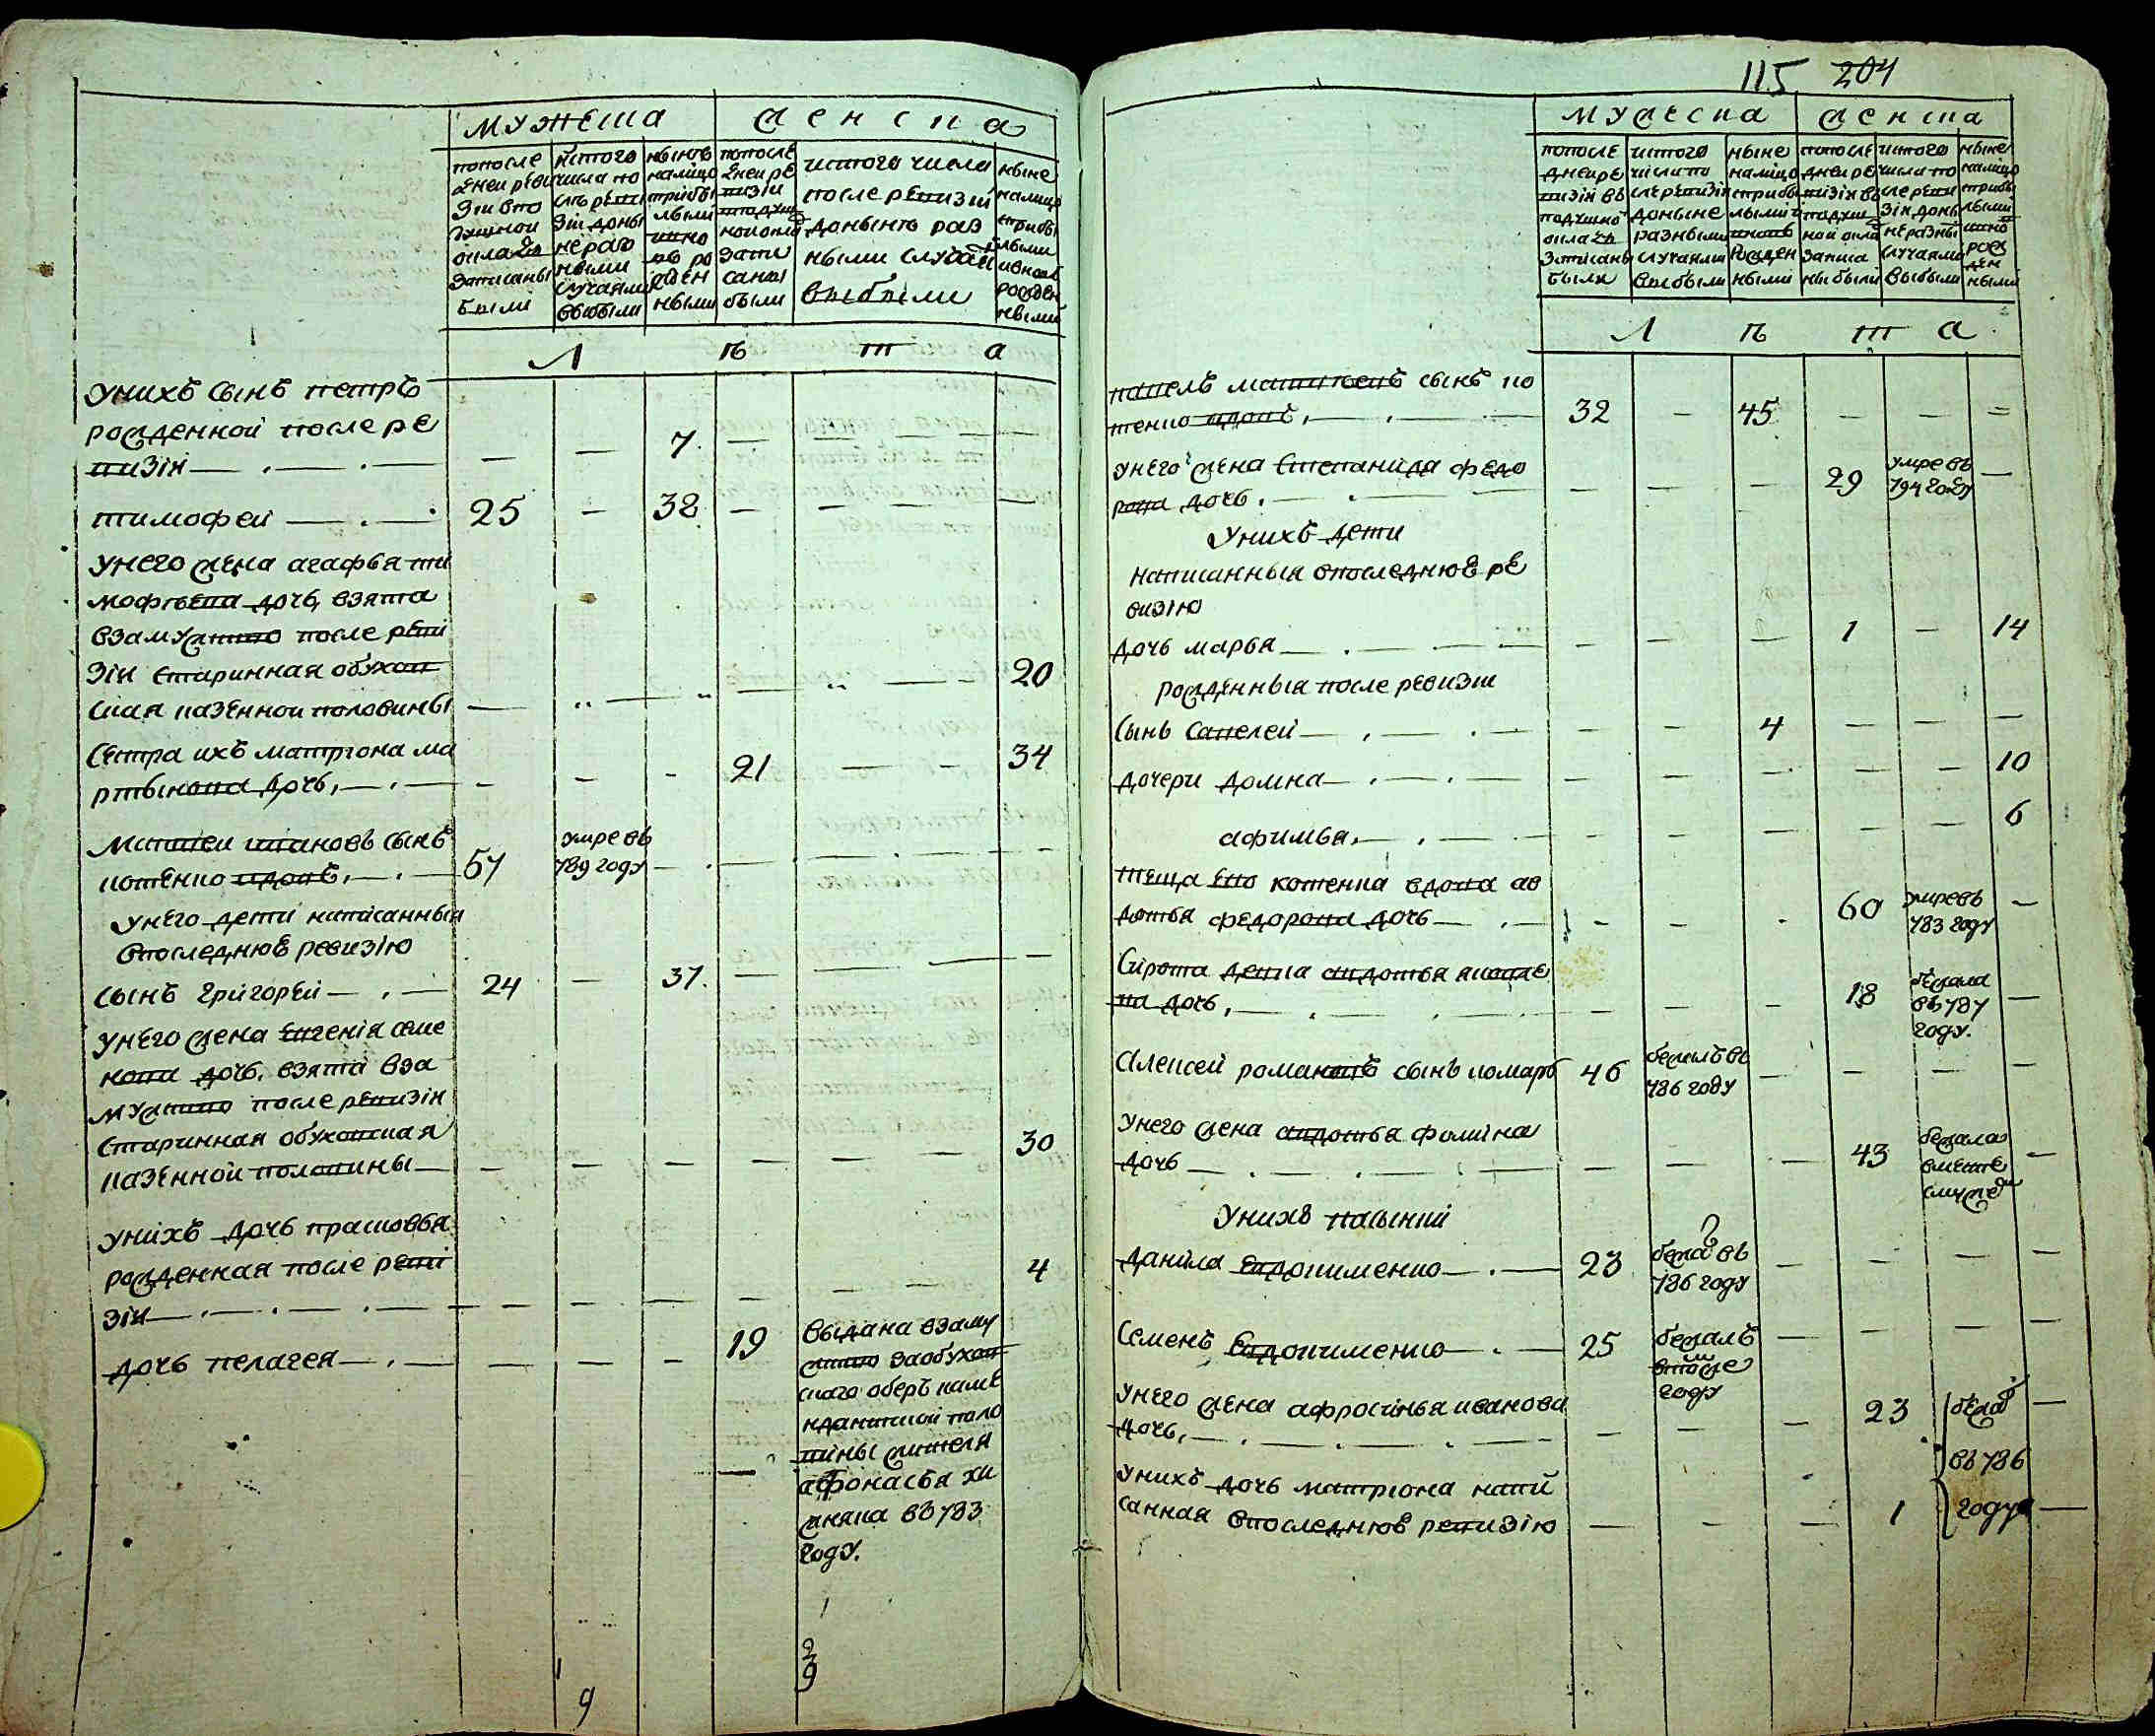 мужеска
женска
попосле
дней реви
зіи впо
душной
окладъ
записаны
были
истого
числа по
слѣ реви
зіи доны
нѣ раз
ными
случаями
выбыли
нынѣ
налицо
сприбы
лыми
ивно
въ ро
жден
ными
попосле
дней ре
визіи
вподуш
ной окла
запи
саны
были
истого числа
после ревизіи
донынѣ раз
ными случаи
выбыли
ныне
налицо
сприбы
лыми
ивновь
рожден
ными
Л ѣ т а
уних сынъ петръ
рожденной после ре
визіи
7
тимофей 25 38
унего жена агафья ти
мофѣева дочь, взята
взамужство после реви
зіи старинная обухов
ская казенной половины 20
Сестра ихъ матрiона ма
ртынова дочь, 21 34
Матвей ивановъ сынъ
котенковъ, 57 умре въ
789 году
унего дети написанныя
впоследнюю ревизію
сынъ григорей 24 37.
унего жена евгенія семе
нова дочь, взята вза
мужство после ревизіи
старинная обуховская
казенной половины 30
унихъ дочь прасковья
рожденная после реви
зіи 4
дочь пелагея 19
выдана взаму
жство заобухов
скаго оберъ коме
ндантской поло
вины жителя
афонасья хи
жняка въ 783
году.
9
115 204
мужеска
женска
попосле
дней ре
визіи въ
подушной
окладъ
записаны
были
истого
числа по
сле ревизіи
доныне
разными
случаями
выбыли
ныне
налицо
сприбы
лыми
вновь
рожден
ными
попосле
дней ре
визіи въ
подуш
ной окла
записа
ны были
истого
числа по
сле реви
зіи доны
не разны
случаями
выбыли
ныне
налицо
сприбы
лыми
вно
рож
ден
ными
Л ѣ т а
павелъ матвѣевъ сынъ ко
тенковъ, 32 45
унего жена степанида федо
рова дочь. 29 умре въ
794 году
Унихъ дети
написанныя впоследнюю ре
визію
дочь марья 1 14
рожденныя после ревизіи
Сынъ савелей 4
дочери домна 10
афимья, 6
теща ево котенка вдова ав
дотья федорова дочь 60 умре въ
783 году
Сирота девка авдотья яковле
ва дочь, 18 бежала
въ 787
году.
Алексей романовъ сынъ комаръ 46 бежалъ въ
786 году
Унего жена авдотья фомина
дочь 43 бежала
вместе
смужем
Унихъ пасынки
данила евдокименко 23 бежа въ
786 году
Семенъ Евдокименко 25 бежалъ
втомже
году
унего жена афросинья иванова
дочь, 23 бежа
въ 786
году
унихъ дочь матрiона напи
санная впоследнюю ревизію 1